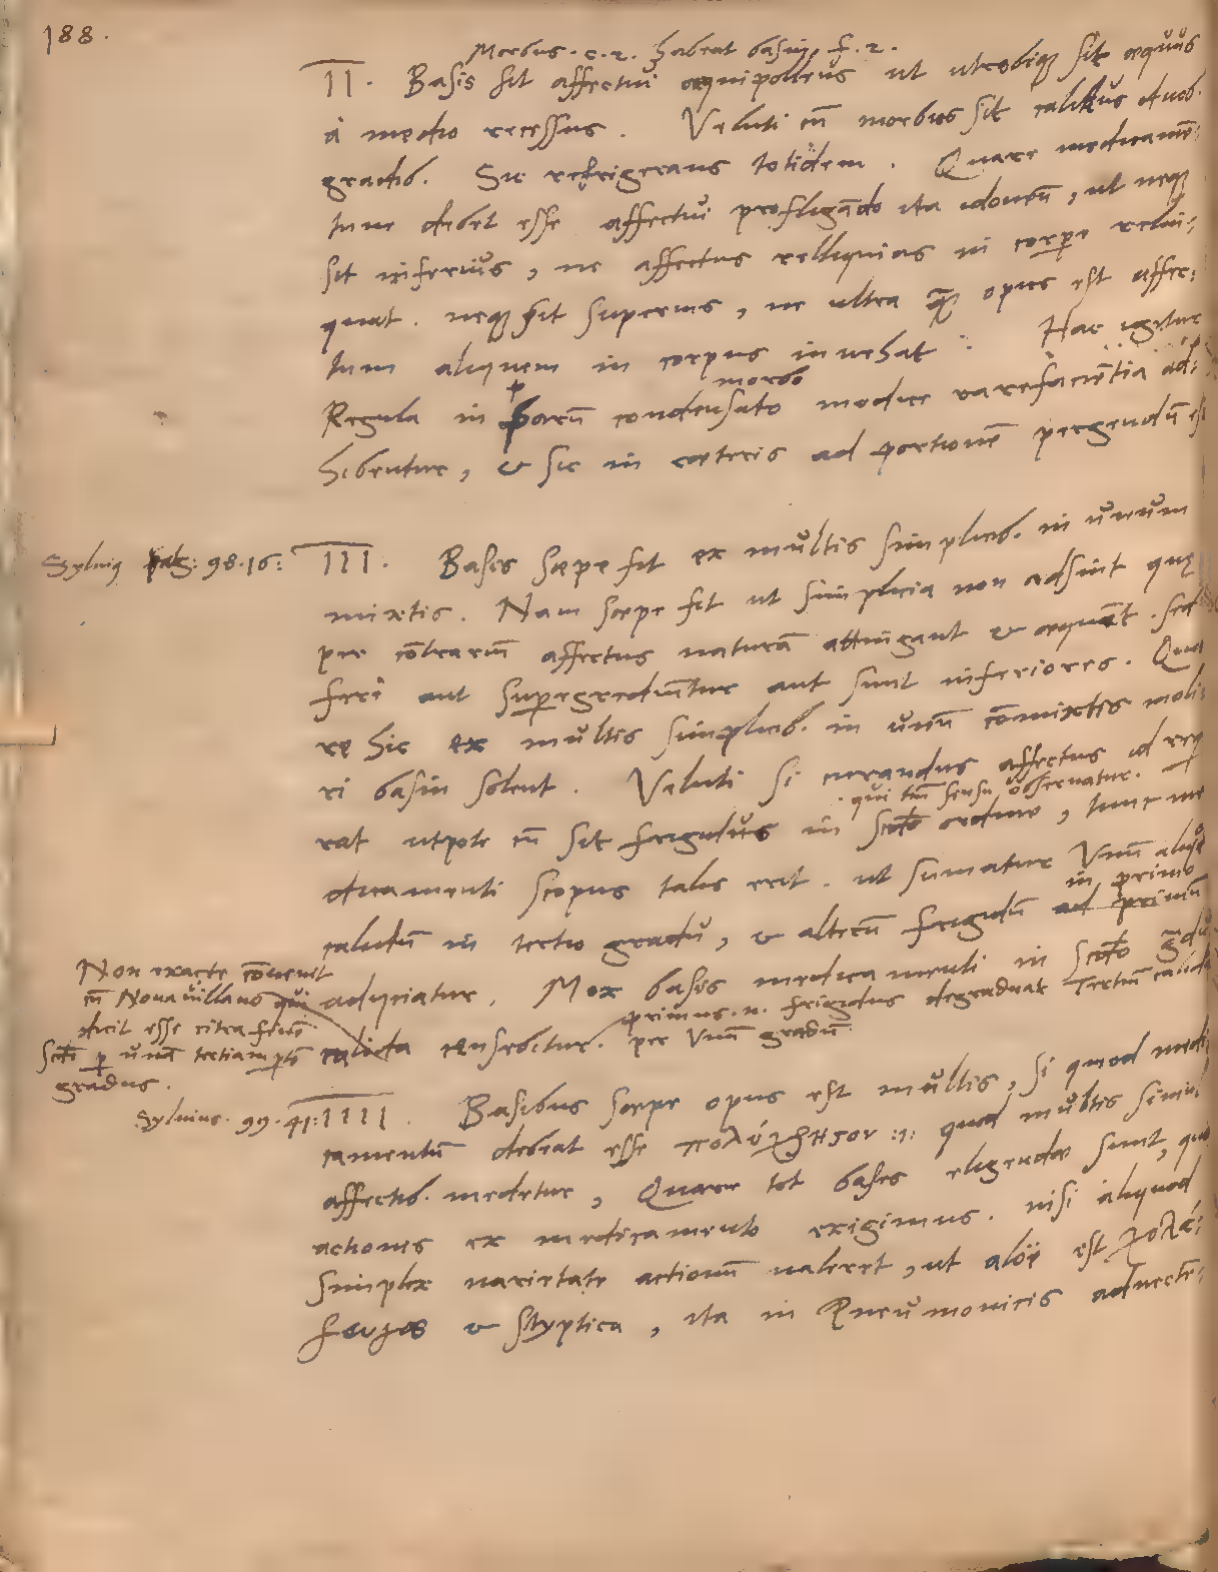 188.
Morbus. c. 2. habeat basin, f. 2.
II. Basis sit affectui æquipollens ut utrobiq; sit æquus
à medio recessus. Veluti cū morbus sit calidus duob.
gradib. Sic refrigerans totidem. Quare medicamē-
tum debet esse affectui profligādo ita idoneū, ut neq;
sit inferius, ne affectus relliquias in corpe relin-
quat. neq; sit superius, ne ultra q̄; opus est affec-
tum aliquem in corpus inuehat. Hac igitur
morbo
Regula in parū condensato modice rarefacientia ad-
hibentur, & sic in cæteris ad portionē pergendū est
Syluiq pag: 98.16: III. Basis sæpe fit ex multis simplicib. in unum
mixtis. Nam sæpe fit ut simplicia non adsint quę
per cōtrariū affectus naturā attingant & æquent. sed
ferè aut supegrediūtur aut sunt inferiores. Qua
re hic ex multis simplicib. in unū cōmixtis moli
ri basin solent. Veluti si curandus affectus id req
. qui tm̄ sensu obseruatur.
rat utpote cū sit frigidus in scd̄o ordine, tunc me
dicamenti scopus talis erit. ut sumatur Unū aliqd
in primo
calidū in tertio gradu, & alterū frigidū ad primū
adijciatur. Mox basis medicamenti in scd̄o gradu
primus. n. frigidus degradat Tertiū calidū
calida censebitur. per Unū gradū.
Non exacte cōuenit
cū Noua uillano qui
dicit esse citra finē
Scd̄i p unā tertiam ptē
gradus.
Syluius. 99. 41: IIII. Basibus sæpe opus est multis, si quod medi
camentū debeat esse πολύχρηστον :i: quod multis simul
affectib. medetur, Quare tot bases eligendæ sunt, quot
actiones ex medicamento exigimus. nisi aliquod
simplex uarietate actionū ualeret, ut aloë est χολα-
& styptica, ita in Pneumonicis aduectē-